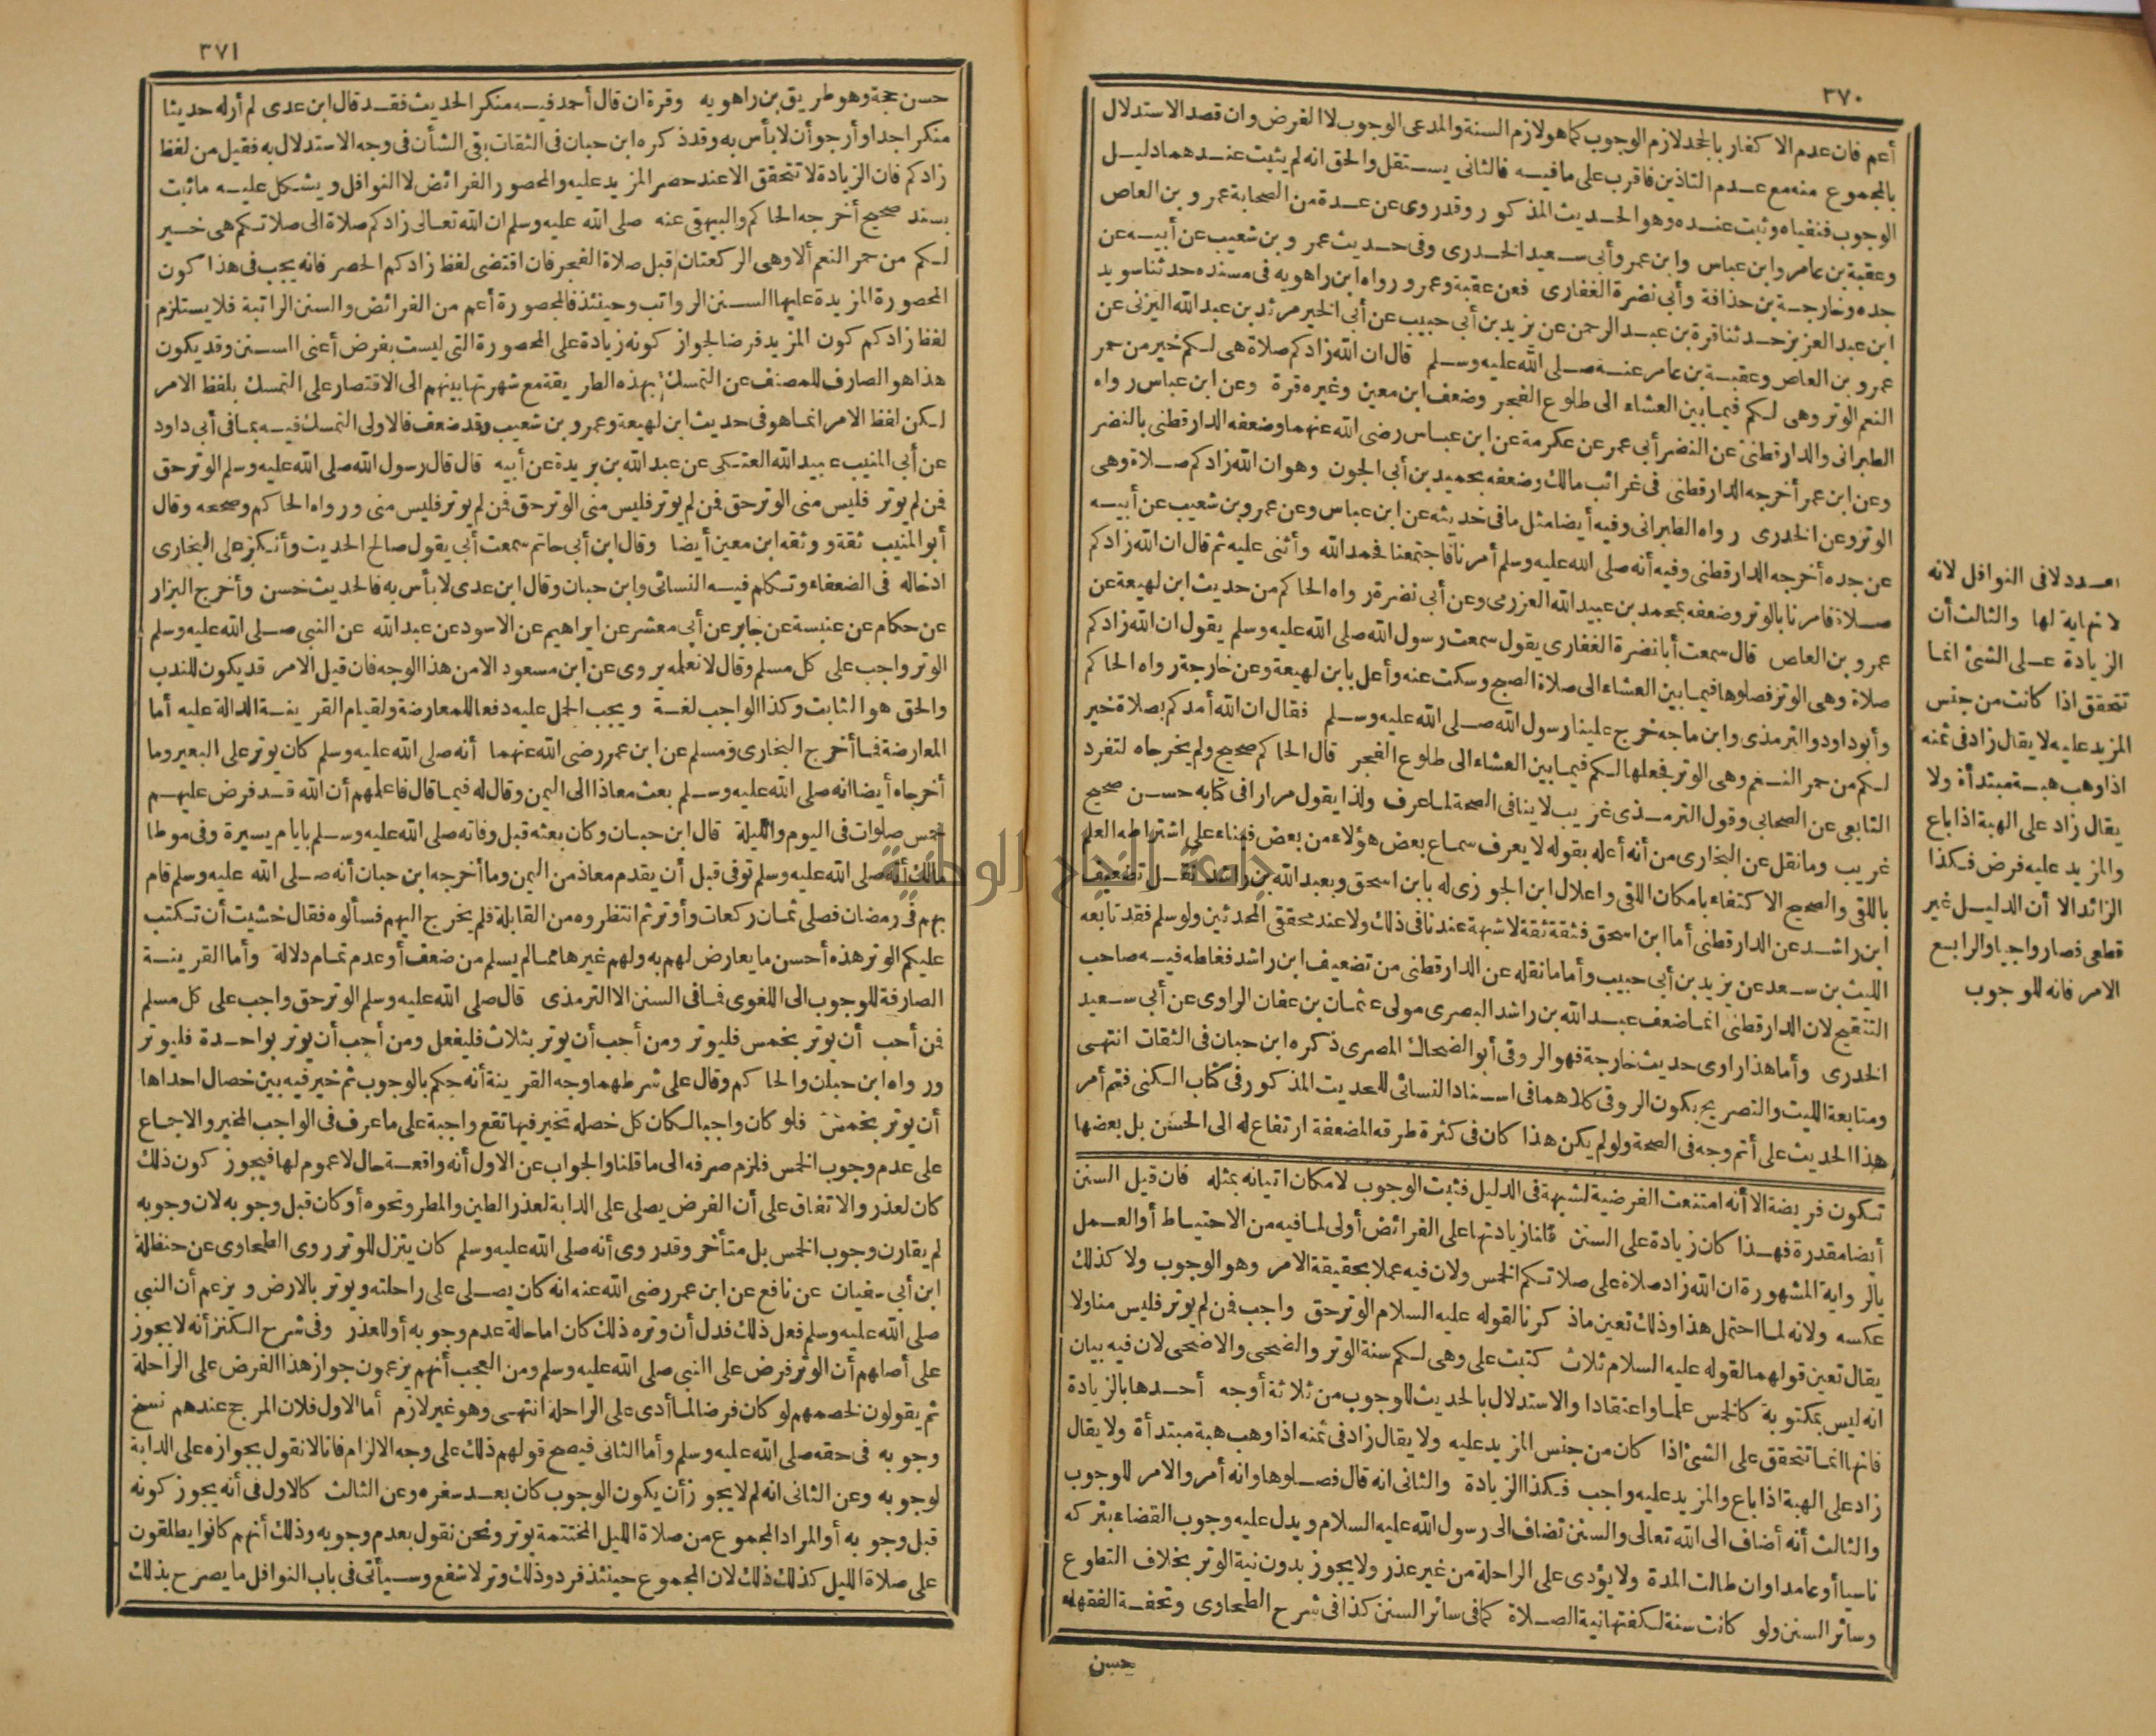 ٣٧٠
أعم فان عدم الاكفار بالجحد لازم الوجوب كما هو لازم السنة والمدعى الوجوب لا الفرض وان قصد الاستدلال
بالمجموع منه مع عدم التاذين فاقرب على ما فيه فالثانى يستقل والحق انه لم يثبت عندهما دليل
الوجوب فنفياه وثبت عنده وهو الحديث المذكور وقد روى عن عدة من الصحابة عمرو بن العاص
وعقبة بن عامر وابن عباس وابن عمر وأبى سعيد الخدرى وفى حديث عمرو بن شعيب عن أبيه عن
جده وخارجة بن حذافة وأبى نضرة الغفارى فعن عقبة وعمرو رواه ابن راهويه فى مسنده حدثنا سويد
ابن عبد العزيز حدثنا قرة بن عبد الرحمن عن يزيد بن أبى حبيب عن أبى الخير مرثد بن عبد الله اليزنى عن
عمرو بن العاص وعقبة بن عامر عنه صلى الله عليه وسلم قال ان الله زادكم صلاة هى لكم خير من حمر
النعم الوتر وهى لكم فيما بين العشاء الى طلوع الفجر وضعف ابن معين وغيره قرة وعن ابن عباس رواه
الطبرانى والدارقطنى عن النضر أبى عمر عن عكرمة عن ابن عباس رضى الله عنهما وضعفه الدارقطنى بالنضر
وعن ابن عمر أخرجه الدارقطنى فى غرائب مالك وضعفه بحميد بن أبى الجون وهو ان الله زادكم صلاة وهى
الوتر وعن الخدرى رواه الطبرانى وفيه أيضا مثل ما فى حديثه عن ابن عباس وعن عمرو بن شعيب عن أبيه
عن جده أخرجه الدارقطنى وفيه أنه صلى الله عليه وسلم أمرنا فاجتمعنا فحمد الله وأثنى عليه ثم قال ان الله زادكم
صلاة فامرنا بالوتر وضعفه بمحمد بن عبيد الله العزرمى وعن أبى نضرة رواه الحاكم من حديث ابن لهيعة عن
عمرو بن العاص قال سمعت أبا نضرة الغفارى يقول سمعت رسول الله صلى الله عليه وسلم يقول ان الله زادكم
صلاة وهى الوتر فصلوها فيما بين العشاء الى صلاة الصبح وسكت عنه وأعل بابن لهيعة وعن خارجة رواه الحاكم
وأبو داود والترمذى وابن ماجه خرج علينا رسول الله صلى الله عليه وسلم فقال ان الله أمدكم بصلاة خير
لكم من حمر النعم وهى الوتر فجعلها لكم فيما بين العشاء الى طلوع الفجر قال الحاكم صحيح ولم يخرجاه لتفرد
التابعى عن الصحابى وقول الترمذى غريب لا ينافى الصحة لما عرف ولذا يقول مرارا فى كتابه حسن صحيح
غريب وما نقل عن البخارى من أنه أعله بقوله لا يعرف سماع بعض هؤلاء من بعض فبناء على اشتراطه العلم
باللقى والصحيح الاكتفاء بامكان اللقى واعلال ابن الجوزى له بابن اسحق وبعبد الله بن راشد نقل تضعيف
ابن راشد عن الدارقطنى أما ابن اسحق فثقة ثقة لا شبهة عندنا فى ذلك ولا عند محققى المحدثين ولو سلم فقد تابعه
الليث بن سعد عن يزيد بن أبى حبيب وأما ما نقله عن الدارقطنى من تضعيف ابن راشد فغلطه فيه صاحب
التنقيح لان الدارقطنى انما ضعف عبد الله بن راشد البصرى مولى عثمان بن عفان الراوى عن أبى سعيد
الخدرى وأما هذا راوى حديث خارجة فهو الزوفى أبو الضحاك المصرى ذكره ابن حبان فى الثقات انتهى
ومتابعة الليث والتصريح بكون الزوفى كلاهما فى اسناد النسائى للحديث المذكور فى كتاب الكنى فتم أمر
هذا الحديث على أتم وجه فى الصحة ولو لم يكن هذا كان فى كثرة طرقه المضعفة ارتفاع له الى الحسن بل بعضها
تكون فريضة الا أنه امتنعت الفرضية لشبهة فى الدليل فثبت الوجوب لامكان اتيانه بمثله فان قيل السنن
أيضا مقدرة فهذا كان زيادة على السنن قلنا زيادتها على الفرائض أولى لما فيه من الاحتياط أو العمل
بالرواية المشهورة ان الله زاد صلاة على صلاتكم الخمس ولان فيه عملا بحقيقة الامر وهو الوجوب ولا كذلك
عكسه ولانه لما احتمل هذا وذلك تعين ما ذكرنا لقوله عليه السلام الوتر حق واجب فمن لم يوتر فليس منا ولا
يقال تعين قولهما لقوله عليه السلام ثلاث كتبت على وهى لكم سنة الوتر والضحى والاضحى لان فيه بيان
انه ليس بمكتوبة كالخمس علما واعتقادا والاستدلال بالحديث للوجوب من ثلاثة أوجه أحدها بالزيادة
فانها انما تتحقق على الشئ اذا كان من جنس المزيد عليه ولا يقال زاد فى ثمنه اذا وهب هبة مبتدأة ولا يقال
زاد على الهبة اذا باع والمزيد عليه واجب فكذا الزيادة والثانى انه قال فصلوها وانه أمر والامر للوجوب
والثالث أنه أضاف الى الله تعالى والسنن تضاف الى رسول الله عليه السلام ويدل عليه وجوب القضاء بتركه
ناسيا أو عامدا وان طالت المدة ولا يؤدى على الراحلة من غير عذر ولا يجوز بدون نية الوتر بخلاف التطوع
وسائر السنن ولو كانت سنة لكفتها نية الصلاة كما فى سائر السنن كذا فى شرح الطحاوى وتحفة الفقهاء
حسن
لا فى النوافل لانه
لا نهاية لها والثالث أن
الزيادة على الشئ انما
تتحقق اذا كانت من جنس
المزيد عليه لا يقال زاد فى ثمنه
اذا وهب هبة مبتدأة ولا
يقال زاد على الهبة اذا باع
والمزيد عليه فرض فكذا
الزائد الا أن الدليل غير
قطعى فصار واجبا والرابع
الامر فانه للوجوب
٣٧١
حسن حجة وهو طريق بن راهويه وقرة ان قال أحمد فيه منكر الحديث فقد قال ابن عدى لم أر له حديثا
منكرا جدا وأرجو أن لا بأس به وقد ذكره ابن حبان فى الثقات بقى الشأن فى وجه الاستدلال به فقيل من لفظ
زادكم فان الزيادة لا تتحقق الا عند حصر المزيد عليه والمحصور الفرائض لا النوافل ويشكل عليه ما ثبت
بسند صحيح أخرجه الحاكم والبيهقى عنه صلى الله عليه وسلم ان الله تعالى زادكم صلاة الى صلاتكم هى خير
لكم من حمر النعم ألا وهى الركعتان قبل صلاة الفجر فان اقتضى لفظ زادكم الحصر فانه يجب فى هذا كون
المحصورة المزيدة عليها السنن الرواتب وحينئذ فالمحصورة أعم من الفرائض والسنن الراتبة فلا يستلزم
لفظ زادكم كون المزيد فرضا لجواز كونه زيادة على المحصورة التى ليست بفرض أعنى السنن وقد يكون
هذا هو الصارف للمصنف عن التمسك بهذه الطريقة مع شهرتها بينهم الى الاقتصار على التمسك بلفظ الامر
لكن لفظ الامر انما هو فى حديث ابن لهيعة وعمرو بن شعيب وقد ضعف فالاولى التمسك فيه بما فى أبى داود
عن أبى المنيب عبيد الله العتكى عن عبد الله بن بريدة عن أبيه قال قال رسول الله صلى الله عليه وسلم الوتر حق
فمن لم يوتر فليس منى الوتر حق فمن لم يوتر فليس منى الوتر حق فمن لم يوتر فليس منى ورواه الحاكم وصححه وقال
أبو المنيب ثقة ووثقه ابن معين أيضا وقال ابن أبى حاتم سمعت أبى يقول صالح الحديث وأنكر على البخارى
ادخاله فى الضعفاء وتكلم فيه النسائى وابن حبان وقال ابن عدى لا بأس به فالحديث حسن وأخرج البزار
عن حكام عن عنبسة عن جابر عن أبى معشر عن ابراهيم عن الاسود عن عبد الله عن النبى صلى الله عليه وسلم
الوتر واجب على كل مسلم وقال لا نعلمه يروى عن ابن مسعود الا من هذا الوجه فان قيل الامر قد يكون للندب
والحق هو الثابت وكذا الواجب لغة ويجب الحمل عليه دفعا للمعارضة ولقيام القرينة الدالة عليه أما
المعارضة فما أخرج البخارى ومسلم عن ابن عمر رضى الله عنهما أنه صلى الله عليه وسلم كان يوتر على البعير وما
أخرجاه أيضا انه صلى الله عليه وسلم بعث معاذا الى اليمن وقال له فيما قال فاعلمهم أن الله قد فرض عليهم
خمس صلوات فى اليوم والليلة قال ابن حبان وكان بعثه قبل وفاته صلى الله عليه وسلم بايام يسيرة وفى موطا
مالك أنه صلى الله عليه وسلم توفى قبل أن يقدم معاذ من اليمن وما أخرجه ابن حبان أنه صلى الله عليه وسلم قام
بهم فى رمضان فصلى ثمان ركعات وأوتر ثم انتظروه من القابلة فلم يخرج اليهم فسألوه فقال خشيت أن تكتب
عليكم الوتر هذه أحسن ما يعارض لهم به ولهم غيرها مما لم يسلم من ضعف أو عدم تمام دلالة وأما القرينة
الصارفة للوجوب الى اللغوى فما فى السنن الا الترمذى قال صلى الله عليه وسلم الوتر حق واجب على كل مسلم
فمن أحب أن يوتر بخمس فليوتر ومن أحب أن يوتر بثلاث فليفعل ومن أحب أن يوتر بواحدة فليوتر
ورواه ابن حبان والحاكم وقال على شرطهما وجه القرينة أنه حكم بالوجوب ثم خير فيه بين خصال احداها
أن يوتر بخمس فلو كان واجبا لكان كل خصلة تخير فيها تقع واجبة على ما عرف فى الواجب المخير والاجماع
على عدم وجوب الخمس فلزم صرفه الى ما قلنا والجواب عن الاول أنه واقعة حال لا عموم لها فيجوز كون ذلك
كان لعذر والاتفاق على أن الفرض يصلى على الدابة لعذر الطين والمطر ونحوه أو كان قبل وجوبه لان وجوبه
لم يقارن وجوب الخمس بل متأخر وقد روى أنه صلى الله عليه وسلم كان ينزل للوتر روى الطحاوى عن حنظلة
ابن أبى سفيان عن نافع عن ابن عمر رضى الله عنه انه كان يصلى على راحلته ويوتر بالارض ويزعم أن النبى
صلى الله عليه وسلم فعل ذلك فدل أن وتره ذلك كان اما حالة عدم وجوبه أو للعذر وفى شرح الكنز أنه لا يجوز
على أصلهم أن الوتر فرض على النبى صلى الله عليه وسلم ومن العجب أنهم يزعمون جواز هذا الفرض على الراحلة
ثم يقولون لخصمهم لو كان فرضا لما أدى على الراحلة انتهى وهو غير لازم أما الاول فلان المرجح عندهم نسخ
وجوبه فى حقه صلى الله عليه وسلم وأما الثانى فيصح قولهم ذلك على وجه الالزام فانا لا نقول بجوازه على الدابة
لوجوبه وعن الثانى انه لم لا يجوز أن يكون الوجوب كان بعد سفره وعن الثالث كالاول فى أنه يجوز كونه
قبل وجوبه أو المراد المجموع من صلاة الليل المختتمة بوتر ونحن نقول بعدم وجوبه وذلك أنهم كانوا يطلقون
على صلاة الليل كذلك ذلك لان المجموع حينئذ فرد وذلك وتر لا شفع وسيأتى فى باب النوافل ما يصرح بذلك
جامعة النجاح الوطنية